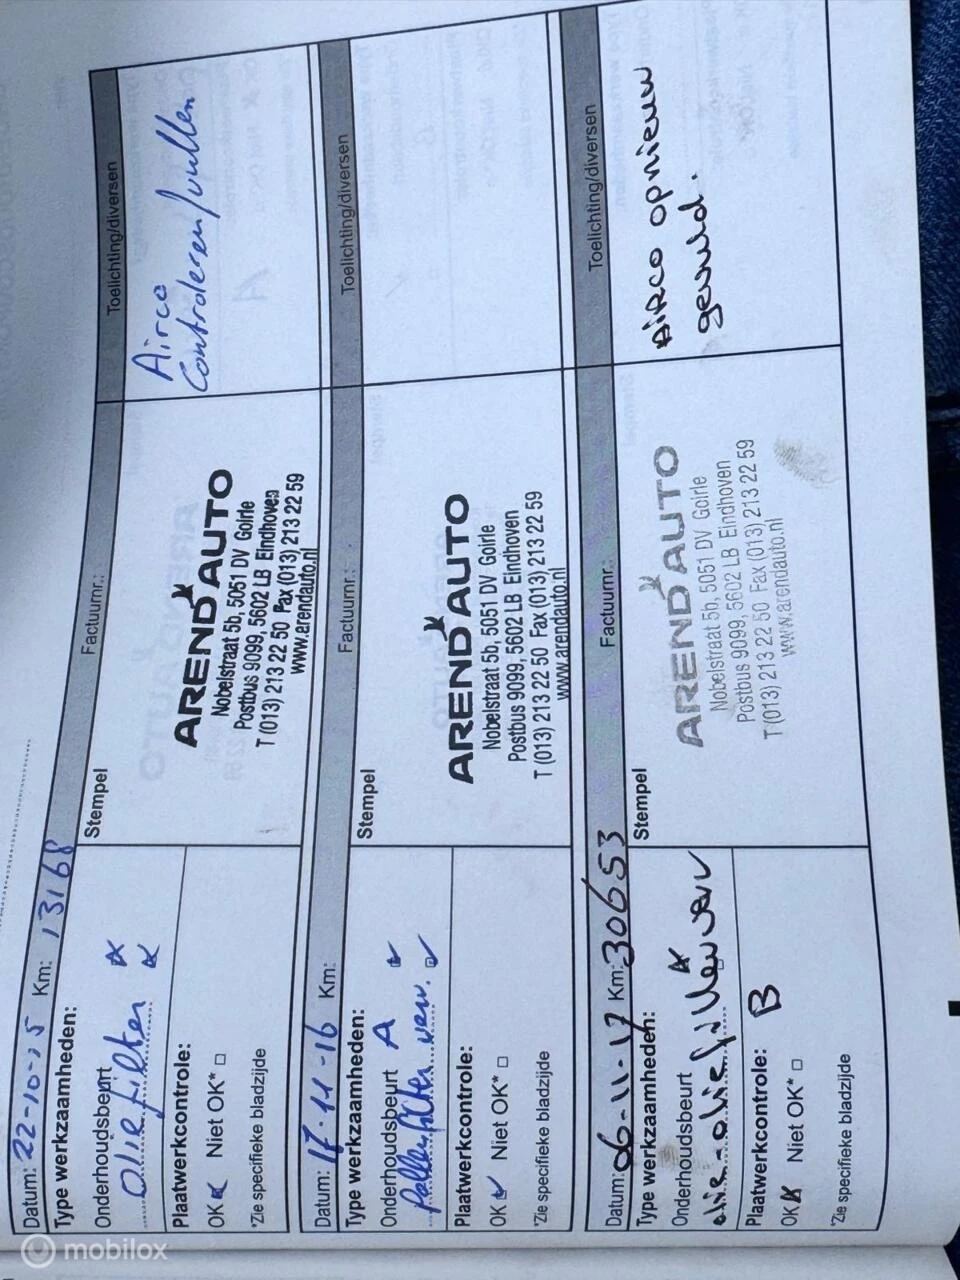 Datum: 22-10-15 Km: 13168 Factuurnr.: Toelichting/diversen
Type werkzaamheden:
Onderhoudsbeurt
Olie filter
Plaatwerkcontrole:
OK Niet OK*
*Zie specifieke bladzijde
Stempel
AREND AUTO
Nobelstraat 5b, 5051 DV Goirle
Postbus 9099, 5602 LB Eindhoven
T (013) 213 22 50 Fax (013) 213 22 59
www.arendauto.nl
Airco
Controleren/vullen
Datum: 17-11-16 Km: Factuurnr.: Toelichting/diversen
Type werkzaamheden:
Onderhoudsbeurt A
Pollenfilter verv.
Plaatwerkcontrole:
OK Niet OK*
*Zie specifieke bladzijde
Stempel
AREND AUTO
Nobelstraat 5b, 5051 DV Goirle
Postbus 9099, 5602 LB Eindhoven
T (013) 213 22 50 Fax (013) 213 22 59
www.arendauto.nl
Datum: 06-11-17 Km: 30653 Factuurnr.: Toelichting/diversen
Type werkzaamheden:
Onderhoudsbeurt
olie-oliefilter verv
Plaatwerkcontrole: B
OK Niet OK*
*Zie specifieke bladzijde
Stempel
AREND AUTO
Nobelstraat 5b, 5051 DV Goirle
Postbus 9099, 5602 LB Eindhoven
T (013) 213 22 50 Fax (013) 213 22 59
www.arendauto.nl
Airco opnieuw
gevuld.
mobilox